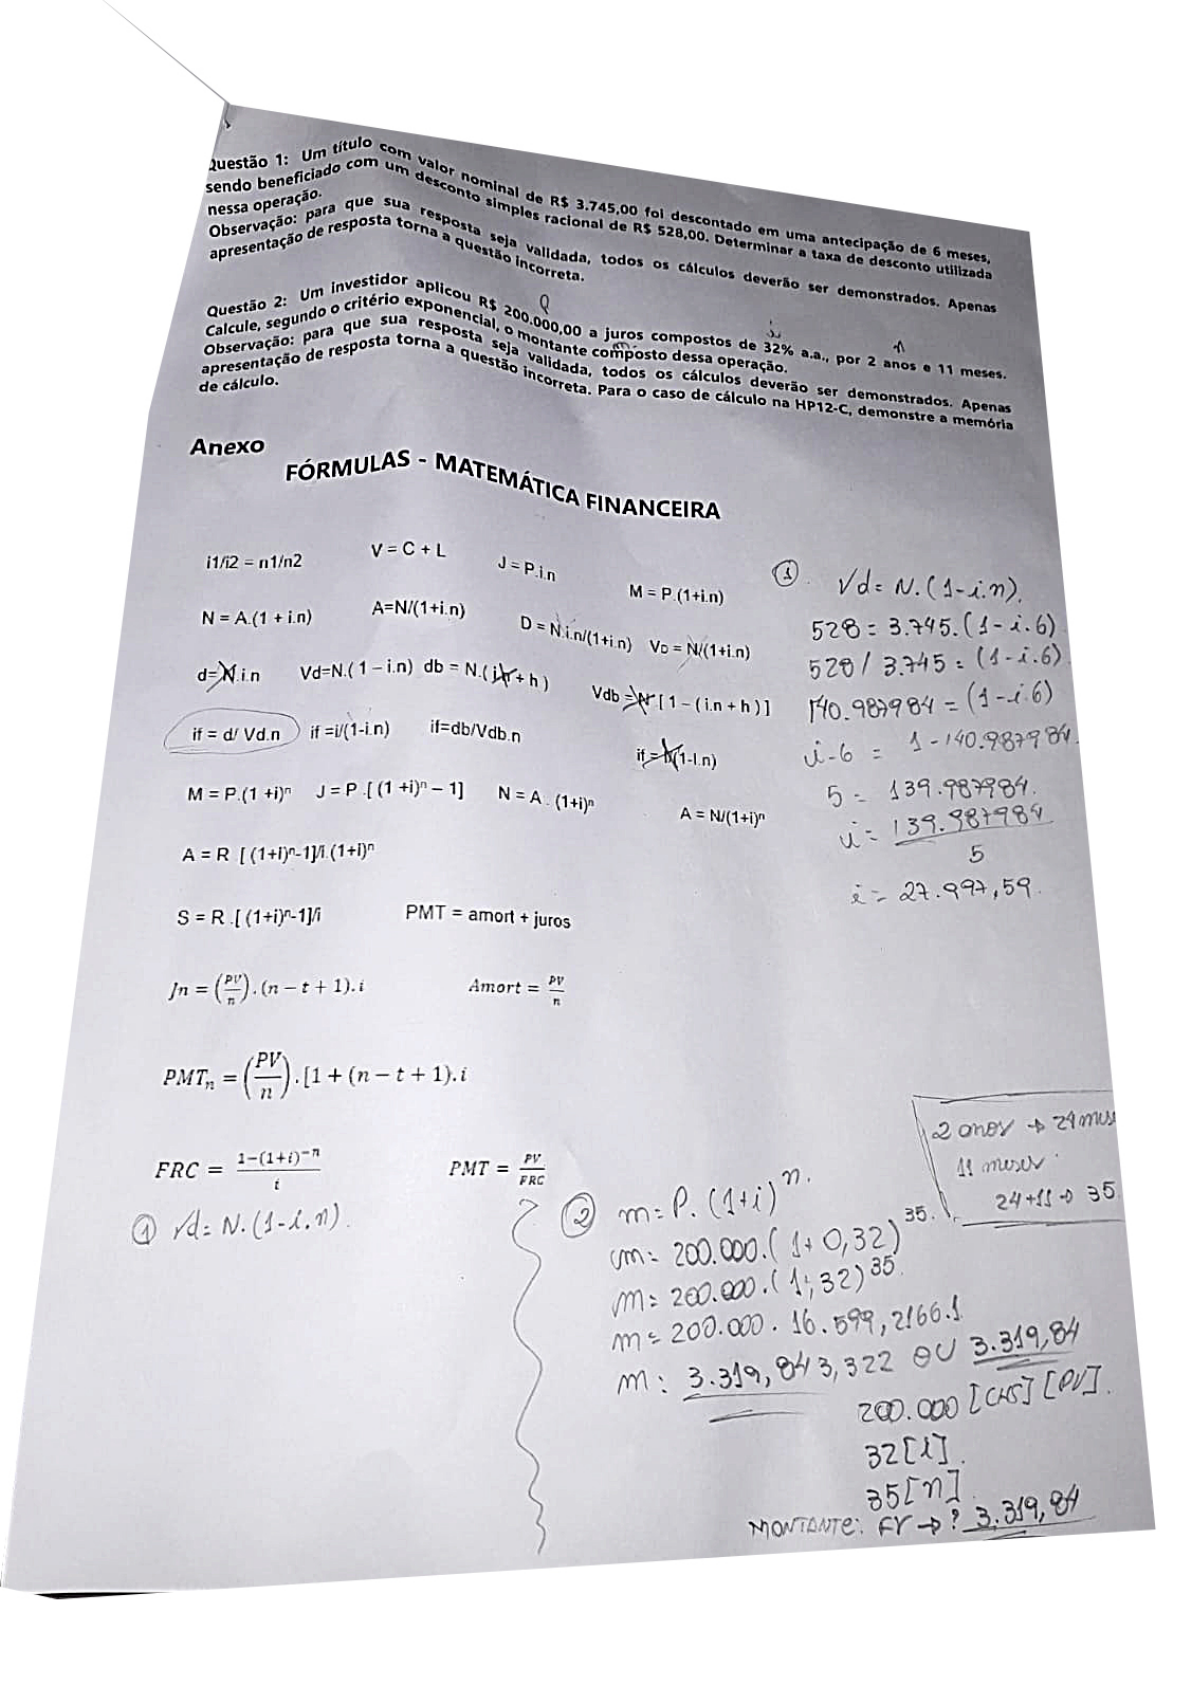 Questão 1: Um título com valor nominal de R$ 3.745,00 foi descontado em uma antecipação de 6 meses,
sendo beneficiado com um desconto simples racional de R$ 528,00. Determinar a taxa de desconto utilizada
nessa operação.
Observação: para que sua resposta seja validada, todos os cálculos deverão ser demonstrados. Apenas
apresentação de resposta torna a questão incorreta.
Questão 2: Um investidor aplicou R$ 200.000,00 a juros compostos de 32% a.a., por 2 anos e 11 meses.
Calcule, segundo o critério exponencial, o montante composto dessa operação.
Observação: para que sua resposta seja validada, todos os cálculos deverão ser demonstrados. Apenas
apresentação de resposta torna a questão incorreta. Para o caso de cálculo na HP12-C, demonstre a memória
de cálculo.
Anexo
FÓRMULAS - MATEMÁTICA FINANCEIRA
i1/i2 = n1/n2 V = C + L J = P.i.n M = P.(1+i.n)
N = A.(1 + i.n) A=N/(1+i.n) D = N.i.n/(1+i.n) VD = N/(1+i.n)
d=N.i.n Vd=N.( 1 – i.n) db = N.( i.n + h ) Vdb = N . [ 1 – ( i.n + h ) ]
if = d/ Vd.n if =i/(1-i.n) if=db/Vdb.n if = i/(1-I.n)
M = P.(1 +i)ⁿ J = P .[ (1 +i)ⁿ – 1] N = A . (1+i)ⁿ A = N/(1+i)ⁿ
A = R .[ (1+i)ⁿ-1]/i.(1+i)ⁿ
S = R .[ (1+i)ⁿ-1]/i PMT = amort + juros
Jn = (PV/n).(n − t + 1).i Amort = PV/n
PMTₙ = (PV/n).[1 + (n − t + 1).i
FRC = 1−(1+i)⁻ⁿ/i PMT = PV/FRC
① Vd = N.(1-i.n).
528 = 3.745.(1-i.6)
528 / 3.745 = (1-i.6)
140.987984 = (1-i.6)
i-6 = 1-140.987984.
5 = 139.987984.
i = 139.987984
5
i = 27.997,59.
① Vd = N.(1-i.n).
2 anos → 24 mes
11 meses
24+11 → 35
② m = P. (1+i)ⁿ.
m = 200.000.(1+0,32)³⁵.
m = 200.000.(1,32)³⁵.
m = 200.000. 16.599,2166.1
m: 3.319,843,322 OU 3.319,84
200.000 [CHS] [PV].
32 [i].
35 [n]
MONTANTE: FV → ? 3.319,84